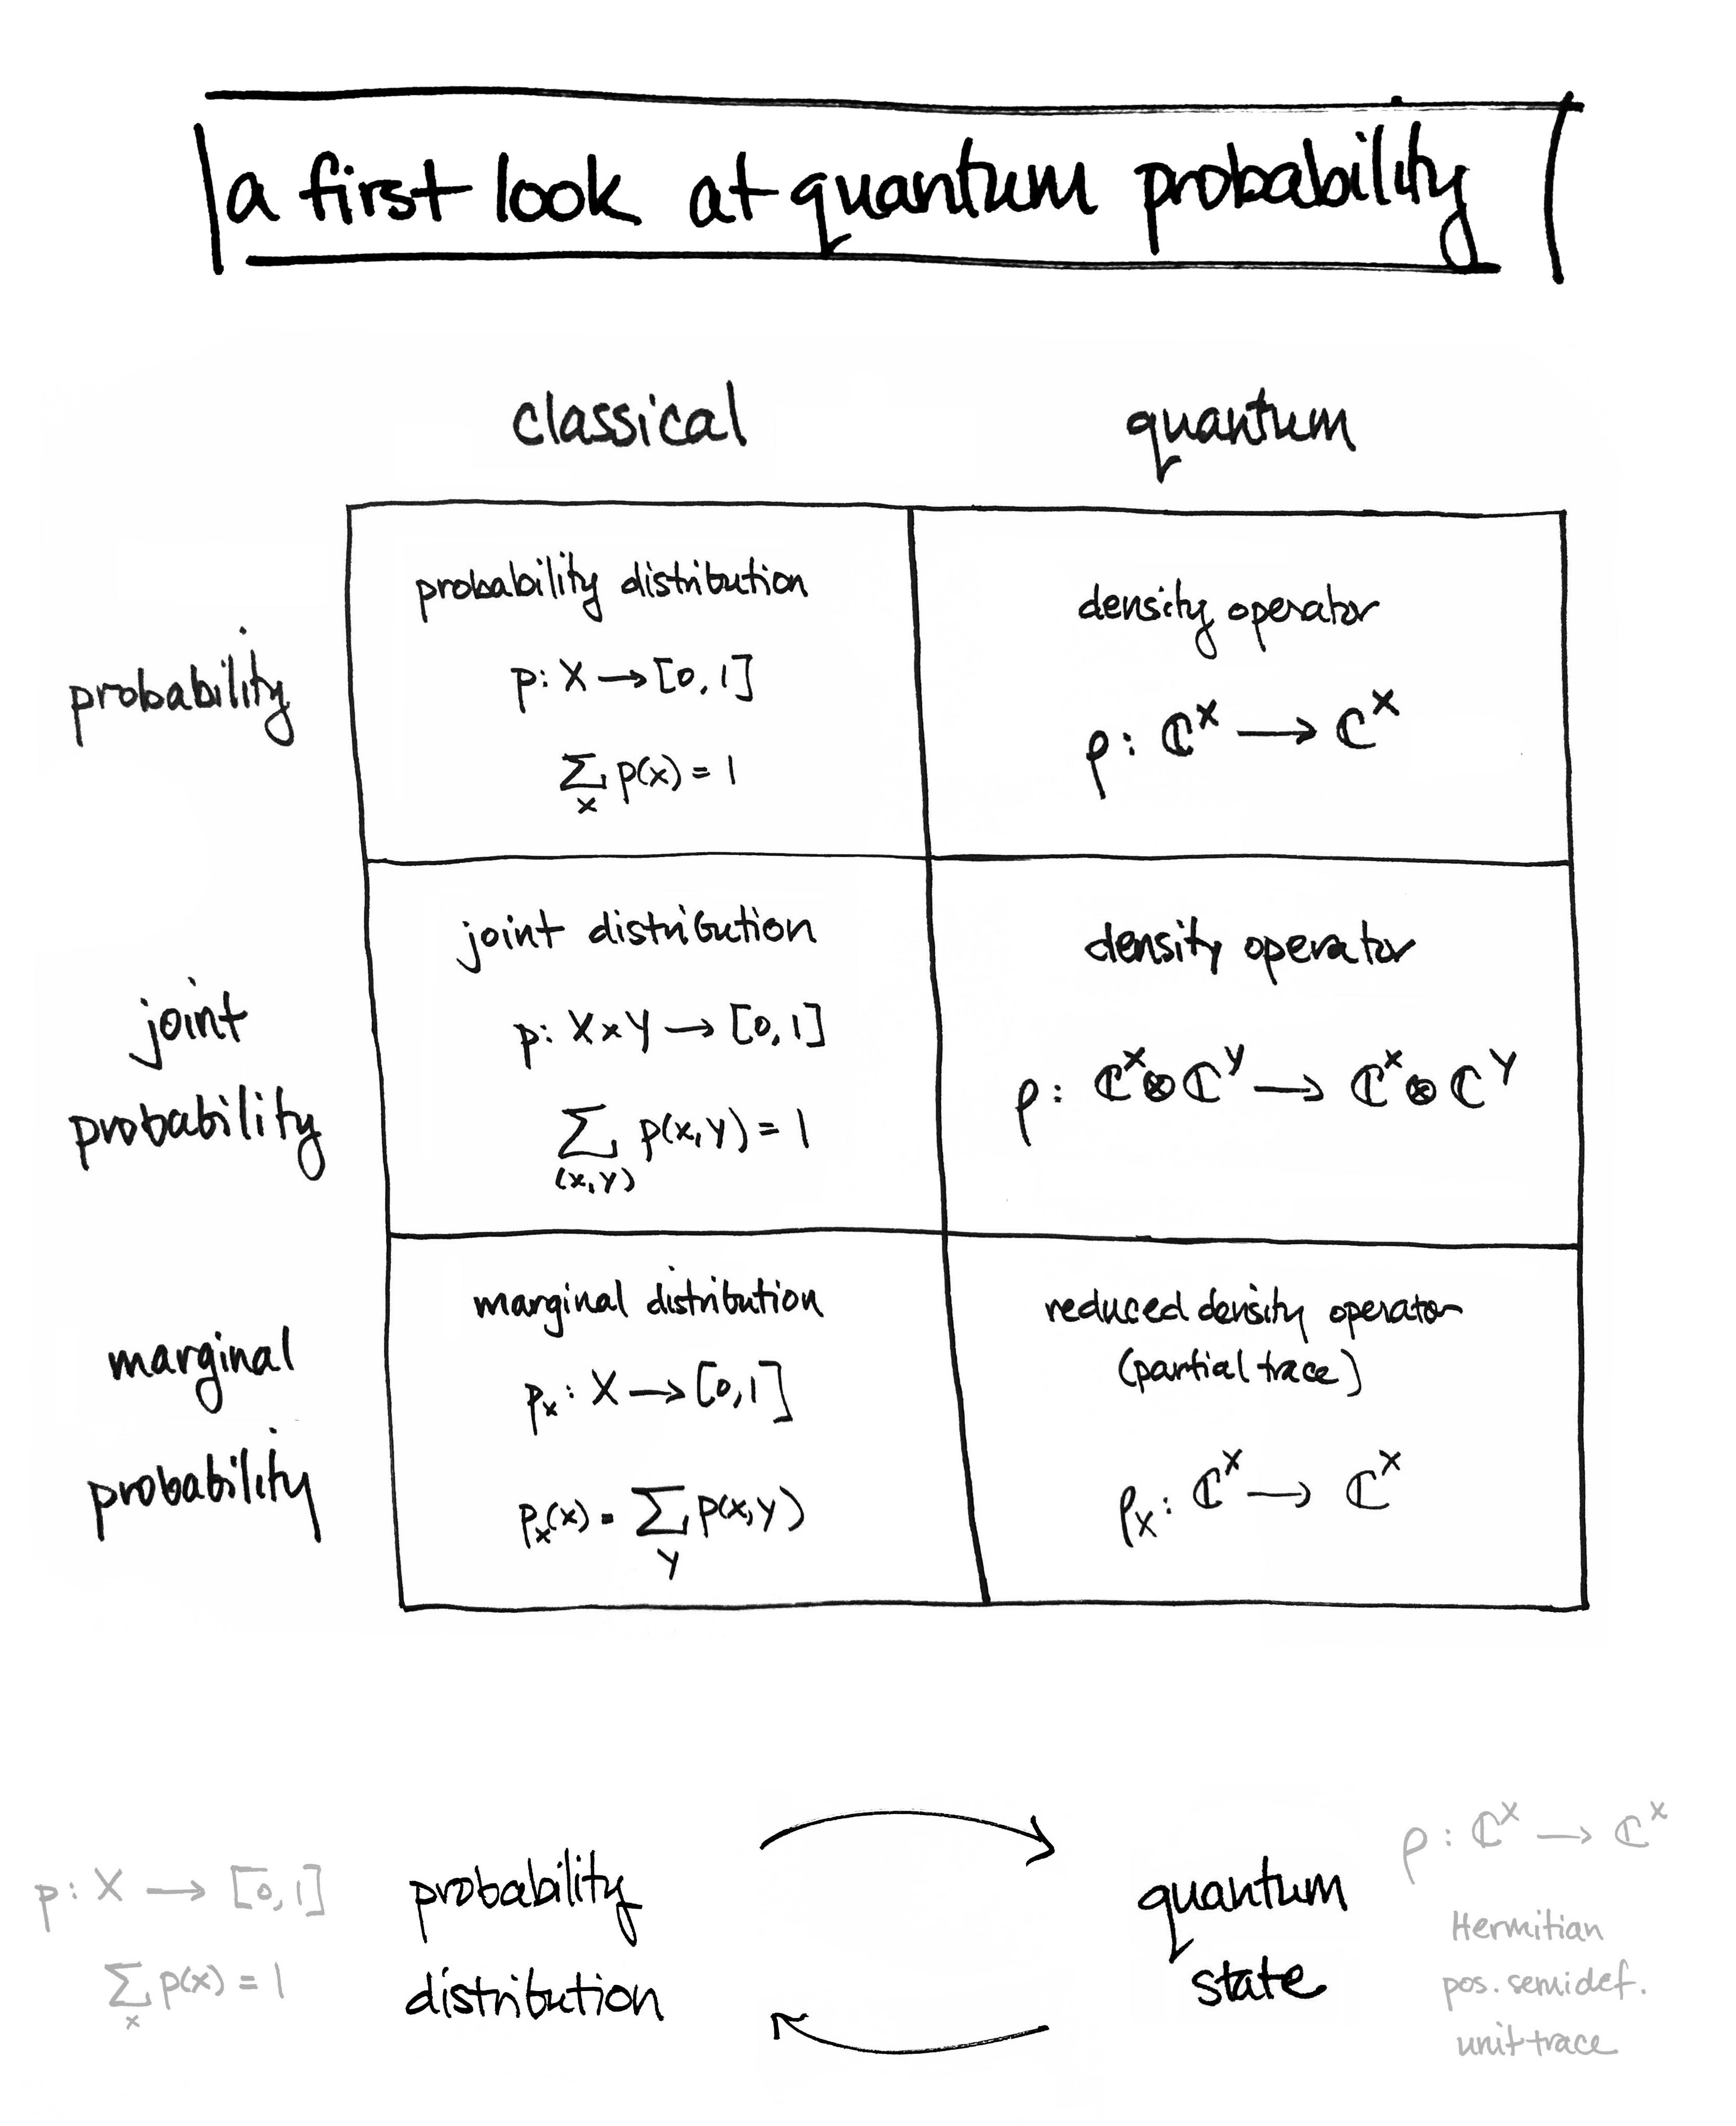 a first look at quantum probability
classical
quantum
probability
probability distribution
p: X → [0,1]
∑ p(x) = 1
x
density operator
ρ: ℂ^X → ℂ^X
joint
probability
joint distribution
p: X×Y → [0,1]
∑ p(x,y) = 1
(x,y)
density operator
ρ: ℂ^X⊗ℂ^Y → ℂ^X⊗ℂ^Y
marginal
probability
marginal distribution
p_X: X → [0,1]
p_X(x) = ∑ p(x,y)
y
reduced density operator
(partial trace)
ρ_X: ℂ^X → ℂ^X
p: X → [0,1]
∑ p(x) = 1
x
probability
distribution
quantum
state
ρ: ℂ^X → ℂ^X
Hermitian
pos. semidef.
unit trace